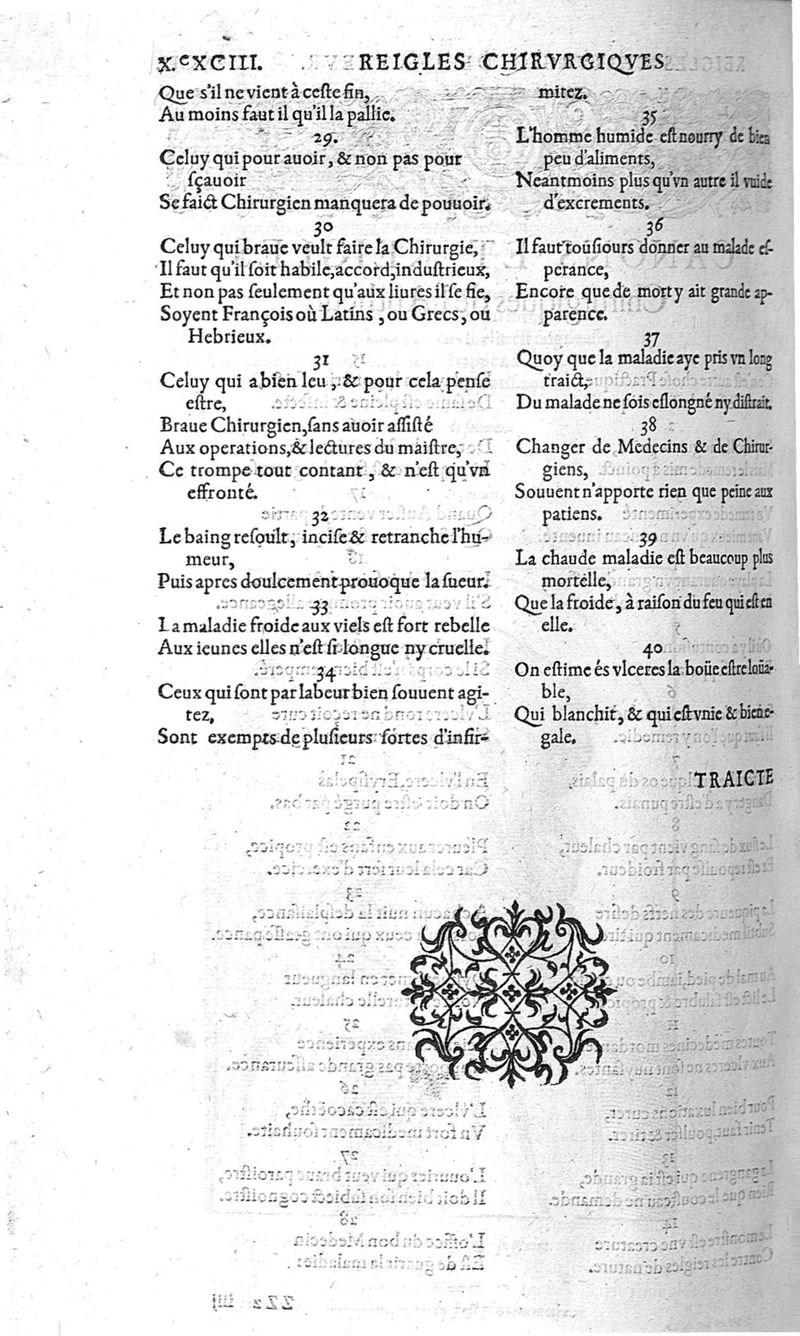 X.ᶜXCIII. REIGLES CHIRVRGIQVES
Que s'il ne vient à ceſte fin,
Au moins faut il qu'il la pallie.
29.
Celuy qui pour auoir, & non pas pour
ſçauoir
Se faict Chirurgien manquera de pouuoir.
30
Celuy qui braue veult faire la Chirurgie,
Il faut qu'il ſoit habile, accord, induſtrieux,
Et non pas ſeulement qu'aux liures il ſe fie,
Soyent François où Latins, ou Grecs, ou
Hebrieux.
31
Celuy qui a bien leu, & pour cela penſe
eſtre,
Braue Chirurgien, ſans auoir aſſiſté
Aux operations, & lectures du maiſtre,
Ce trompe tout contant, & n'eſt qu'vn
effronté.
32
Le baing reſoult, inciſe & retranche l'hu-
meur,
Puis apres doulcement prouoque la ſueur.
33
La maladie froide aux viels eſt fort rebelle
Aux ieunes elles n'eſt ſi longue ny cruelle.
34
Ceux qui ſont par labeur bien ſouuent agi-
tez,
Sont exempts de pluſieurs ſortes d'infir-
mitez.
35
L'homme humide eſt nourry de bien
peu d'aliments,
Neantmoins plus qu'vn autre il vuide
d'excrements.
36
Il faut touſiours donner au malade eſ-
perance,
Encore que de mort y ait grande ap-
parence.
37
Quoy que la maladie aye pris vn long
traict,
Du malade ne ſois eſlongné ny diſtrait.
38
Changer de Medecins & de Chirur-
giens,
Souuent n'apporte rien que peine aux
patiens.
39
La chaude maladie eſt beaucoup plus
mortelle,
Que la froide, à raiſon du feu qui eſt en
elle.
40
On eſtime és vlceres la boüe eſtre loüa-
ble,
Qui blanchit, & qui eſt vnie & bien e-
gale.
TRAICTE